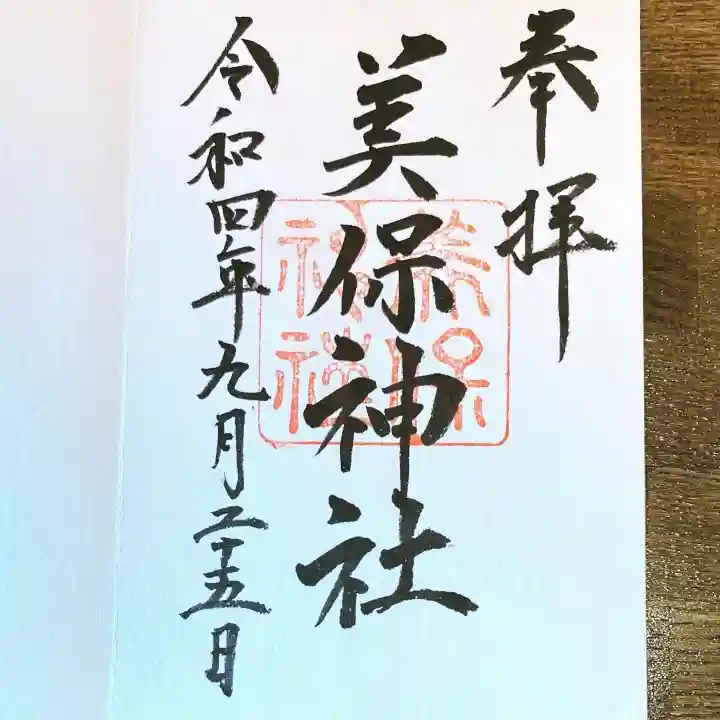 奉拝
美保神社
令和四年九月二十五日
美保神社